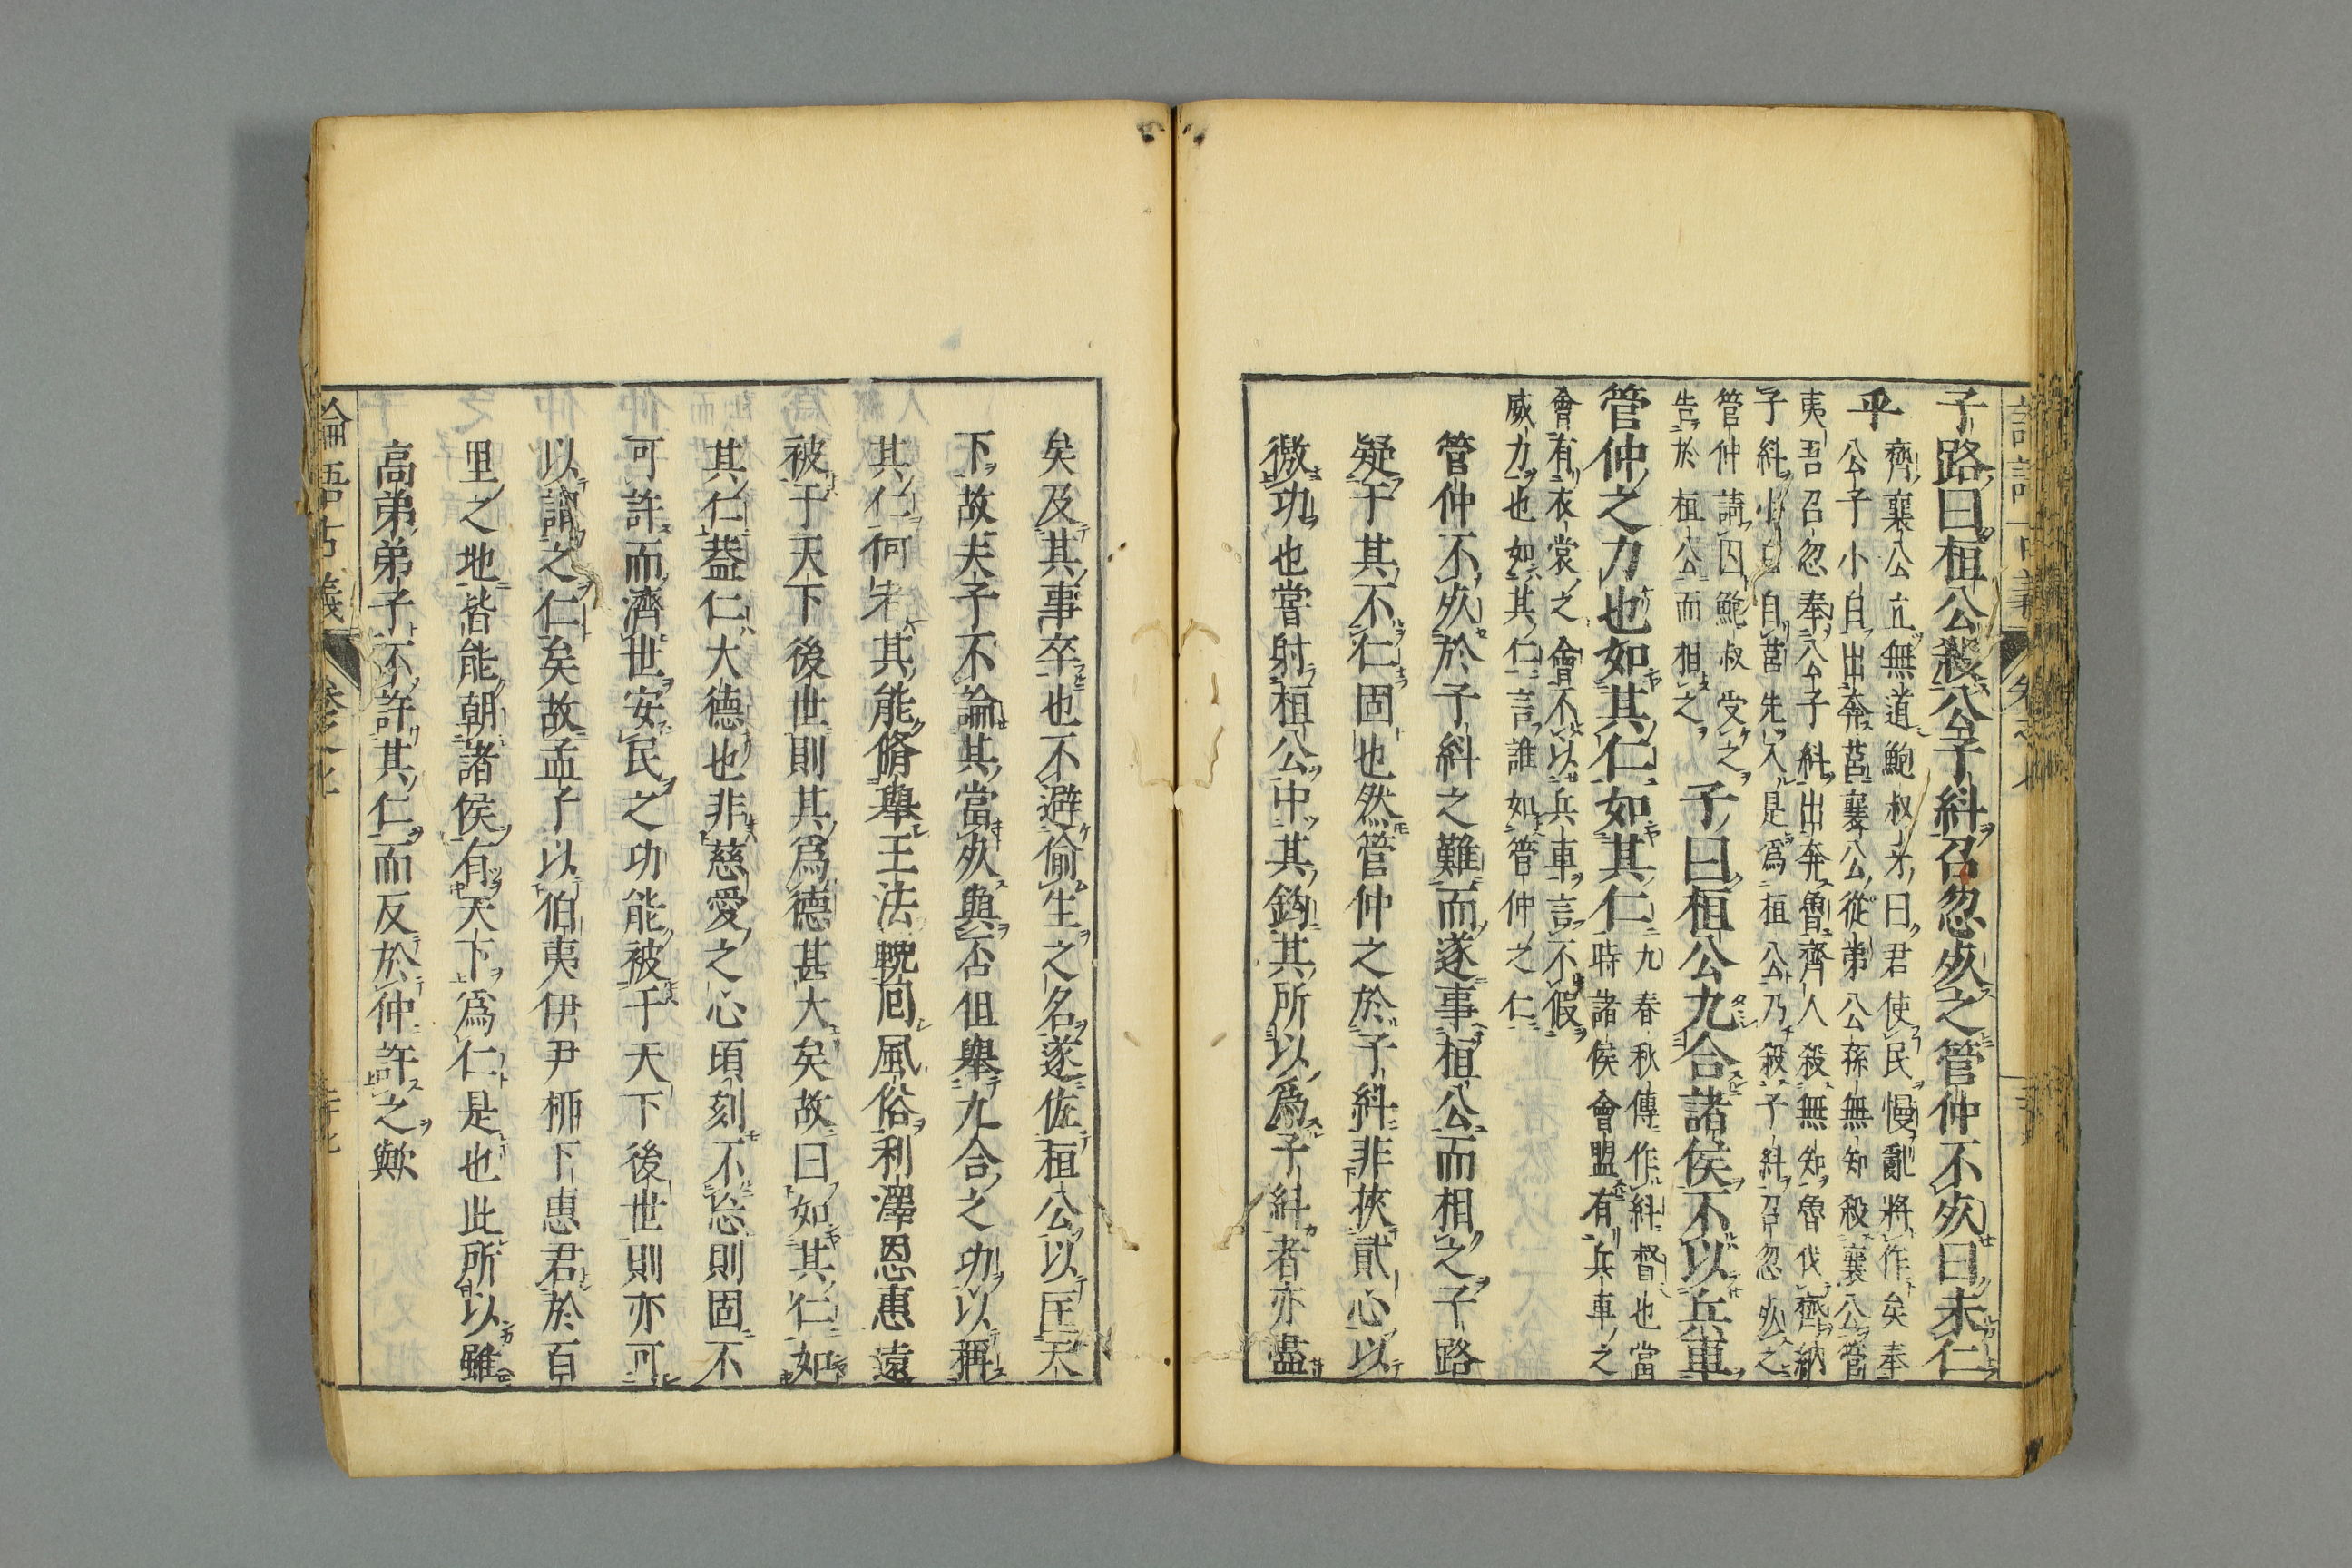 子路曰桓公殺公子糾召忽死之管仲不死曰未仁
乎
齊襄公立無道鮑叔牙曰君使民慢亂將作矣奉
公子小白出奔莒襄公從弟公孫無知殺襄公管
夷吾召忽奉公子糾出奔魯齊人殺無知魯伐齊納
子糾小白自莒先入是爲桓公乃殺子糾召忽死之
管仲請囚鮑叔受之
告於桓公而相之
子曰桓公九合諸侯不以兵車
管仲之力也如其仁如其仁
九春秋傳作糾督也當
時諸侯會盟有兵車之
會有衣裳之會不以兵車言不假
威力也如其仁言誰如管仲之仁
管仲不死於子糾之難而遂事桓公而相之子路
疑于其不仁固也然管仲之於子糾非挾貳心以
徼功也嘗射桓公中其鉤其所以爲子糾者亦盡
矣及其事卒也不避偷生之名遂佐桓公以匡天
下故夫子不論其當死與否但舉九合之功以稱
其仁何朱其能脩舉王法輓囘風俗利澤恩惠遠
被于天下後世則其爲德甚大矣故曰如其仁如
其仁蓋仁大德也非慈愛之心頃刻不忘則固不
可許而濟世安民之功能被于天下後世則亦可
以謂之仁矣故孟子以伯夷伊尹柳下惠君於百
里之地皆能朝諸侯有天下爲仁是也此所以雖
高弟弟子不許其仁而反於仲許之歟
論語古義
卷之七